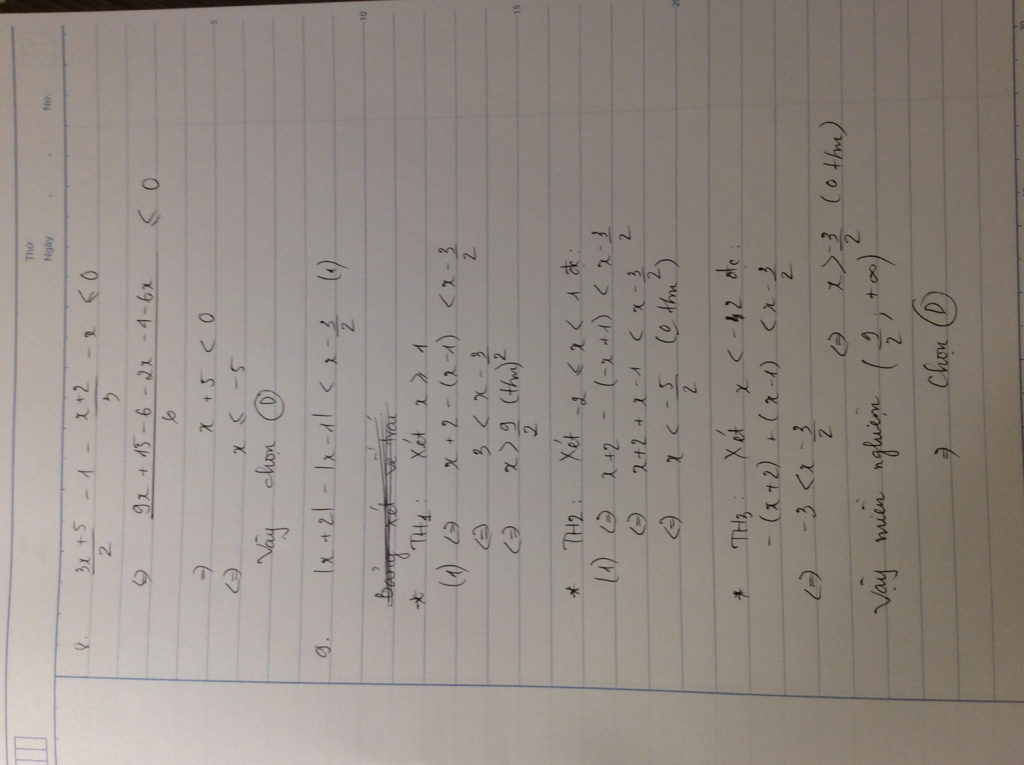 Thứ
Ngày . . No.
8. (3x+5)/2 - 1 - (x+2)/3 - x ≤ 0
(=) (9x + 15 - 6 - 2x - 4 - 6x)/6 ≤ 0
=) x + 5 < 0
(=) x ≤ -5
Vậy chọn (D)
9. |x+2| - |x-1| < x - 3/2 (1)
Bảng xét vế trái
* TH1: Xét x ≥ 1
(1) (=) x+2 - (x-1) < x - 3/2
(=) 3 < x - 3/2
(=) x > 9/2 (thm)
* TH2: Xét -2 ≤ x < 1 đc:
(1) (=) x+2 - (-x+1) < x - 3/2
(=) x+2 + x-1 < x - 3/2
(=) x < -5/2 (0 thm)
* TH3: Xét x < -2 đc:
-(x+2) + (x-1) < x - 3/2
(=) -3 < x - 3/2 (=) x > -3/2 (0 thm)
Vậy miền nghiệm (9/2, +∞)
=) Chọn (D)
5
10
15
20